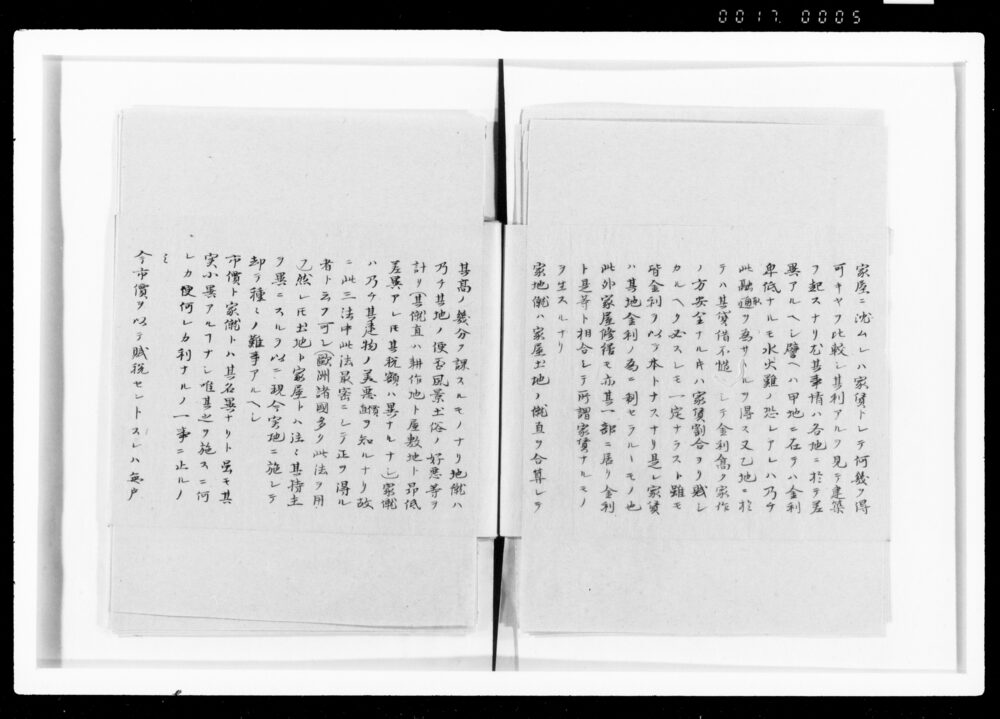 0017 0005
家屋ニ沈ムレハ家賃トシテ何幾ヲ得
可キヤヲ比較シ其利アルヲ見テ建築
ヲ起スナリ尤其事情ハ各地ニ於テ差
異アルヘシ譬ヘハ甲地ニ在テハ金利
卑低ナルモ水火難ノ恐レアレハ乃チ
此融通ヲ為サヽルヲ得ス又乙地ニ於
テハ其貸借不慥ニシテ金利高ク家作
ノ方安全ナルキハ家賃割合ヨリ賤シ
カルヘク必スシモ一定ナラスト雖モ
皆金利ヲ以テ本トナスナリ是レ家賃
ハ其地金利ノ為ニ制セラルヽモノ也
此外家屋修繕モ亦其一部ニ居リ金利
ト是等ト相合シテ所謂家賃ナルモノ
ヲ生スルナリ
家地僦ハ家屋土地ノ僦直ヲ合算シテ
其高ノ幾分ヲ課スルモノナリ地僦ハ
乃チ其地ノ便否風景土俗ノ好悪等ヲ
計リ其僦直ハ耕作地ト屋敷地ト昂低
差異アレ𪜈其税額ハ異ナルナシ家僦
ハ乃チ其建物ノ美悪価ヲ知ルナリ故
ニ此三法中此法最密ニシテ正ヲ得ル
者ト云フ可シ(欧洲諸國多ク此法ヲ用
ユ)然レ𪜈土地ト家屋トハ注々其持主
ヲ異ニスルヲ以ニ現今実地ニ施シテ
却テ種々ノ難事アルヘシ
市價ト家僦トハ其名異ナリト虽モ其
実小異アルヿナシ唯其之ヲ施スニ何
レカ便何レカ利ナルノ一事ニ止ルノ
ミ
今市價ヲ以テ賦税セントスレハ毎戸